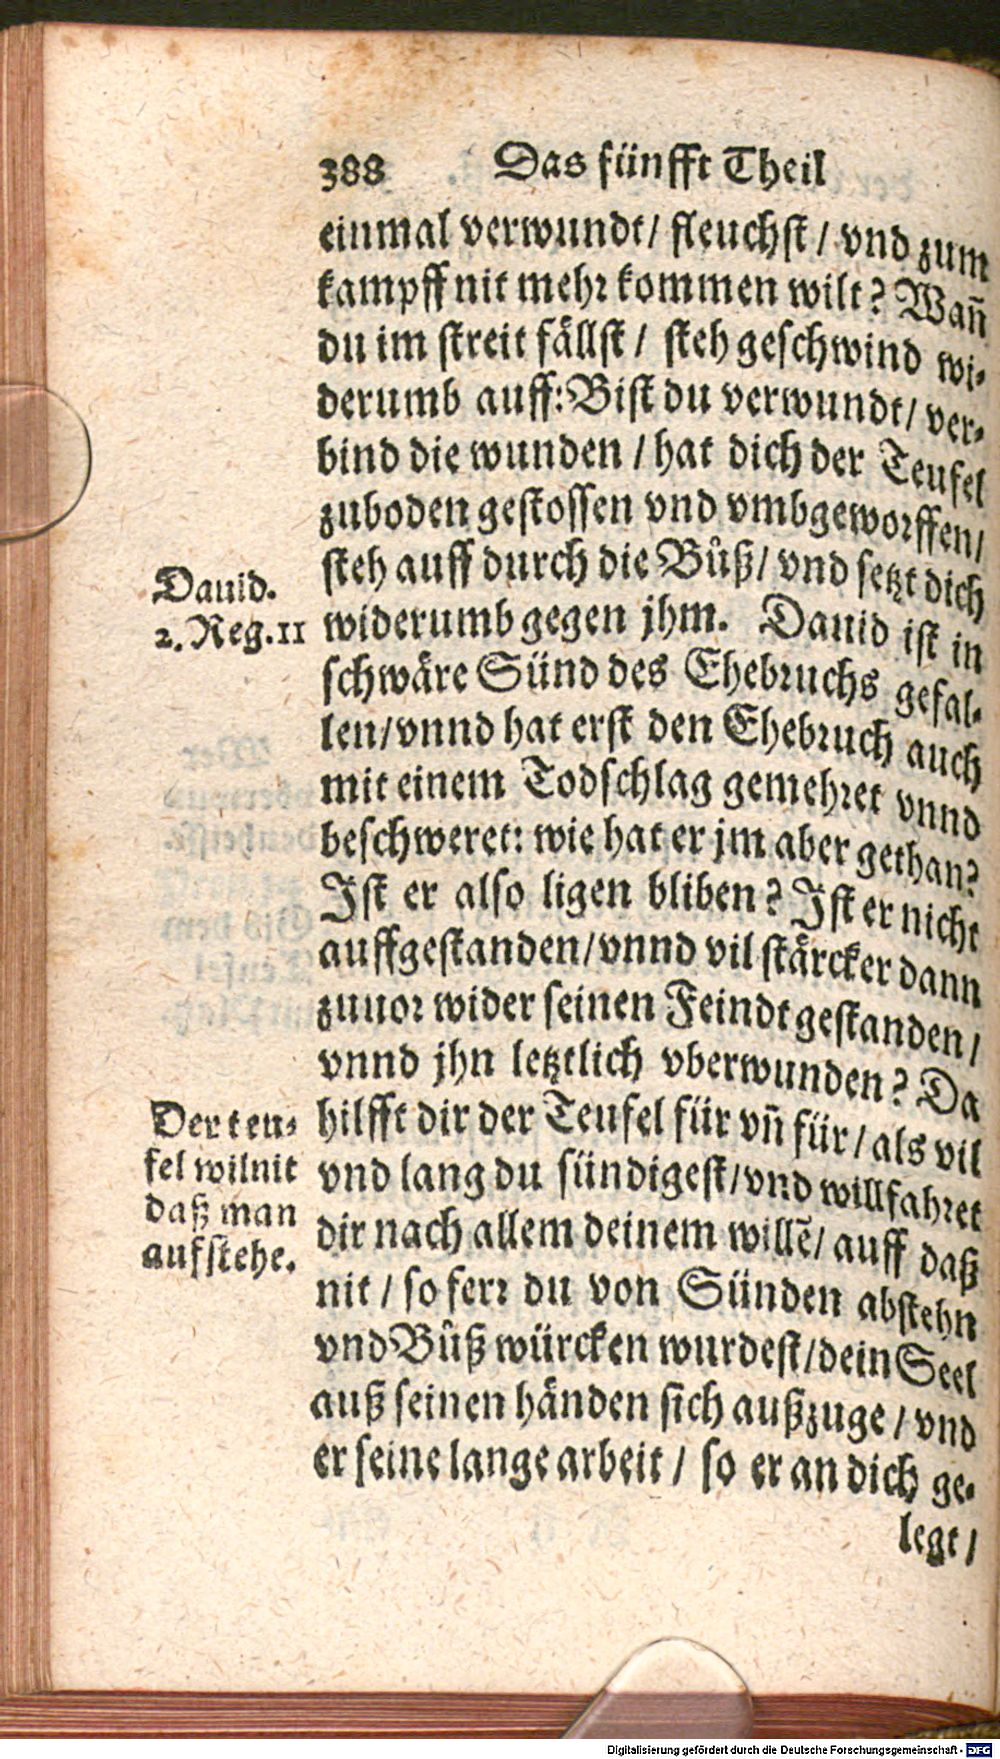 388 Das fünfft Theil
einmal verwundt/ fleuchst/ vnd zum
kampff nit mehr kommen wilt? Wañ
du im streit fällst/ steh geschwind wi-
derumb auff: Bist du verwundt/ ver-
bind die wunden/ hat dich der Teufel
zuboden gestossen vnd vmbgeworffen/
steh auff durch die Bůß/ vnd setzt dich
Dauid.
2. Reg. 11
widerumb gegen jhm. Dauid ist in
schwäre Sünd des Ehebruchs gefal-
len/ vnnd hat erst den Ehebruch auch
mit einem Todschlag gemehret vnnd
beschweret: wie hat er jm aber gethan?
Ist er also ligen bliben? Ist er nicht
auffgestanden/ vnnd vil stärcker dann
zuuor wider seinen Feindt gestanden/
vnnd jhn letztlich vberwunden? Da
Der teu-
fel wil nit
daß man
aufstehe.
hilfft dir der Teufel für vñ für/ als vil
vnd lang du sündigest/ vnd willfahret
dir nach allem deinem willẽ/ auff daß
nit/ so ferr du von Sünden abstehn
vnd Bůß würcken wurdest/ dein Seel
auß seinen händen sich außzuge/ vnd
er seine lange arbeit/ so er an dich ge-
legt/
Digitalisierung gefördert durch die Deutsche Forschungsgemeinschaft - DFG